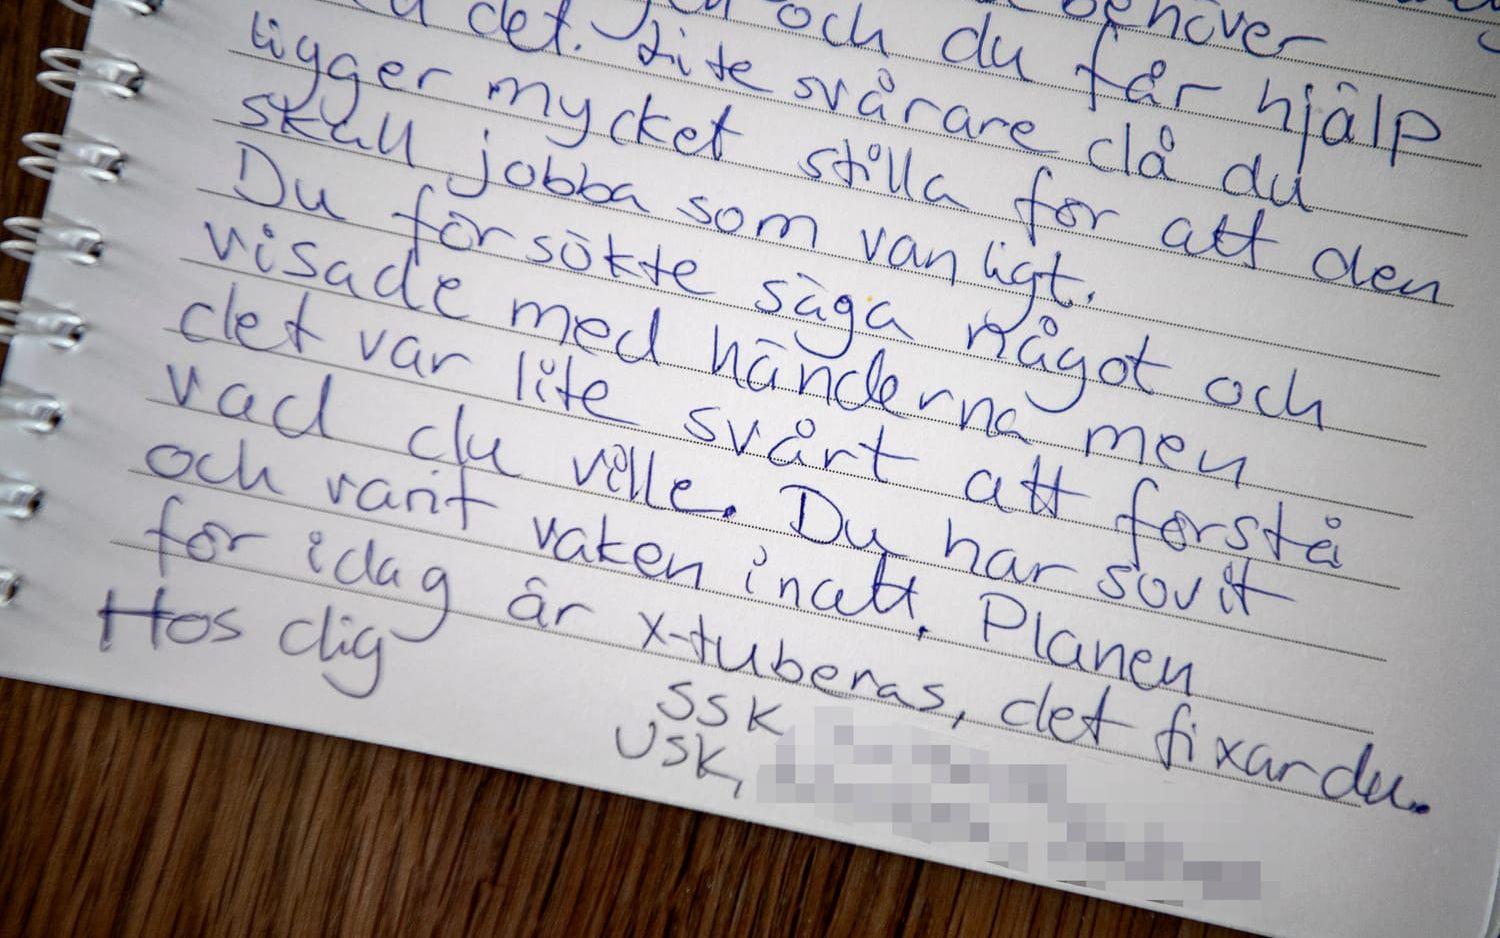 behöver
det. och du får hjälp
Lite svårare då du
ligger mycket stilla för att den
skall jobba som vanligt.
Du försökte säga något och
visade med händerna men
det var lite svårt att förstå
vad du ville. Du har sovit
och varit vaken inatt. Planen
för idag är x-tuberas, det fixar du.
Hos dig
SSK
USK,